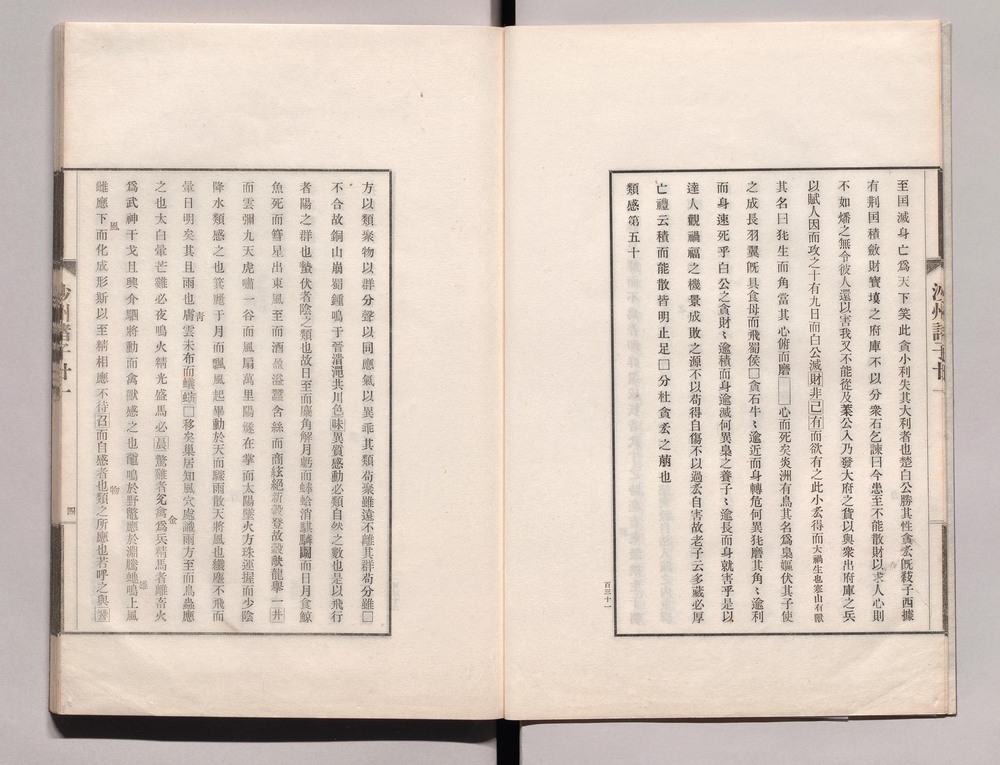 至国滅身亡為天下笑此貪小利失其大利者也楚白公勝其性貪㐫旣煞子西據
有荆国積斂財寳塡之府庫不以分衆石乞諫曰今患至不能散財以求人心則
不如燔之無令彼人還以害我又不能從及葉公入乃發大府之貨以與衆出府庫之兵
以賦人因而攻之十有九日而白公滅財非己有而欲有之此小㐫得而大禍生也塞山有獸
其名曰㹠生而角當其心俯而磨□心而死矣炎洲有鳥其名爲梟嫗伏其子使
之成長羽翼旣具食母而飛蜀侯□貪石牛〻逾近而身轉危何異㹠磨其角〻逾利
而身速死乎白公之貪財〻逾積而身逾滅何異梟之養子〻逾長而身就害乎是以
達人觀禍福之機景成敗之源不以苟得自傷不以過㐫自害故老子云多藏必厚
亡禮云積而能散皆明止足□分杜貪㐫之萌也
類感第五十
百三十一
方以類聚物以群分聲以同應氣以異乖其類苟衆雖遠不離其群苟分雖□
不合故銅山崩蜀鍾鳴于晉澮澠共川色味異質感動必類自然之數也是以飛行
者陽之群也蟄伏者陰之類也故日至而麋角解月虧而蜯蛤消騏驎鬬而日月食鯨
魚死而篲星出東風至而酒盈溢蠶含絲而商絃絕新榖登故榖猒龍舉一井
而雲彌九天虎嘯一谷而風扇萬里陽燧在掌而太陽墜火方珠運握而少陰
降水類感之也箕麗于月而飄風起畢動於天而驟雨散天將風也纖塵不飛而
暈日明矣其且雨也膚雲未布而蟻蟥□移矣巢居知風穴處識雨方至而鳥蟲應
青
之也太白暈芒雞必夜鳴火精光盛馬必晨驚雞者兊禽為兵精馬者離畜火
金
為武神干戈且興介駟將動而禽獸感之也龍鳴於野鼈應於淵騰虵鳴上風
雄
雌應下而化成形斯以至精相應不待召而自感者也類之所應也若呼之與響
風
物
沙州諸子廿一
四